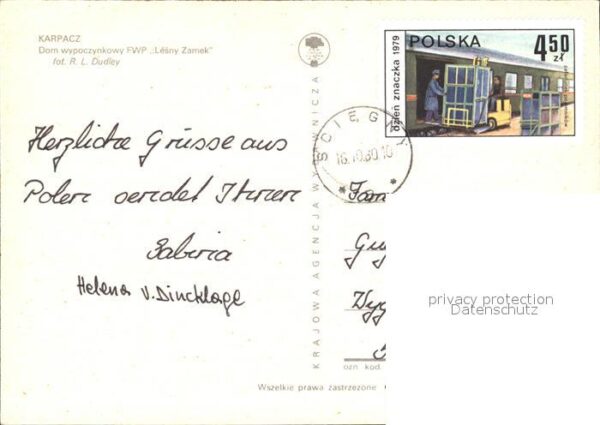 KARPACZ
Dom wypoczynkowy FWP „Leśny Zamek"
fot. R. L. Dudley
dzień znaczka 1979
POLSKA
4,50 zł
ŚCIĘGNY
Herzliche Grüsse aus
Polen sendet Ihnen
Sabina
Helena v. Dincklage
KRAJOWA AGENCJA WYDAWNICZA
Fam
Gu
Wyg
ozn kod
Wszelkie prawa zastrzeżone
privacy protection
Datenschutz